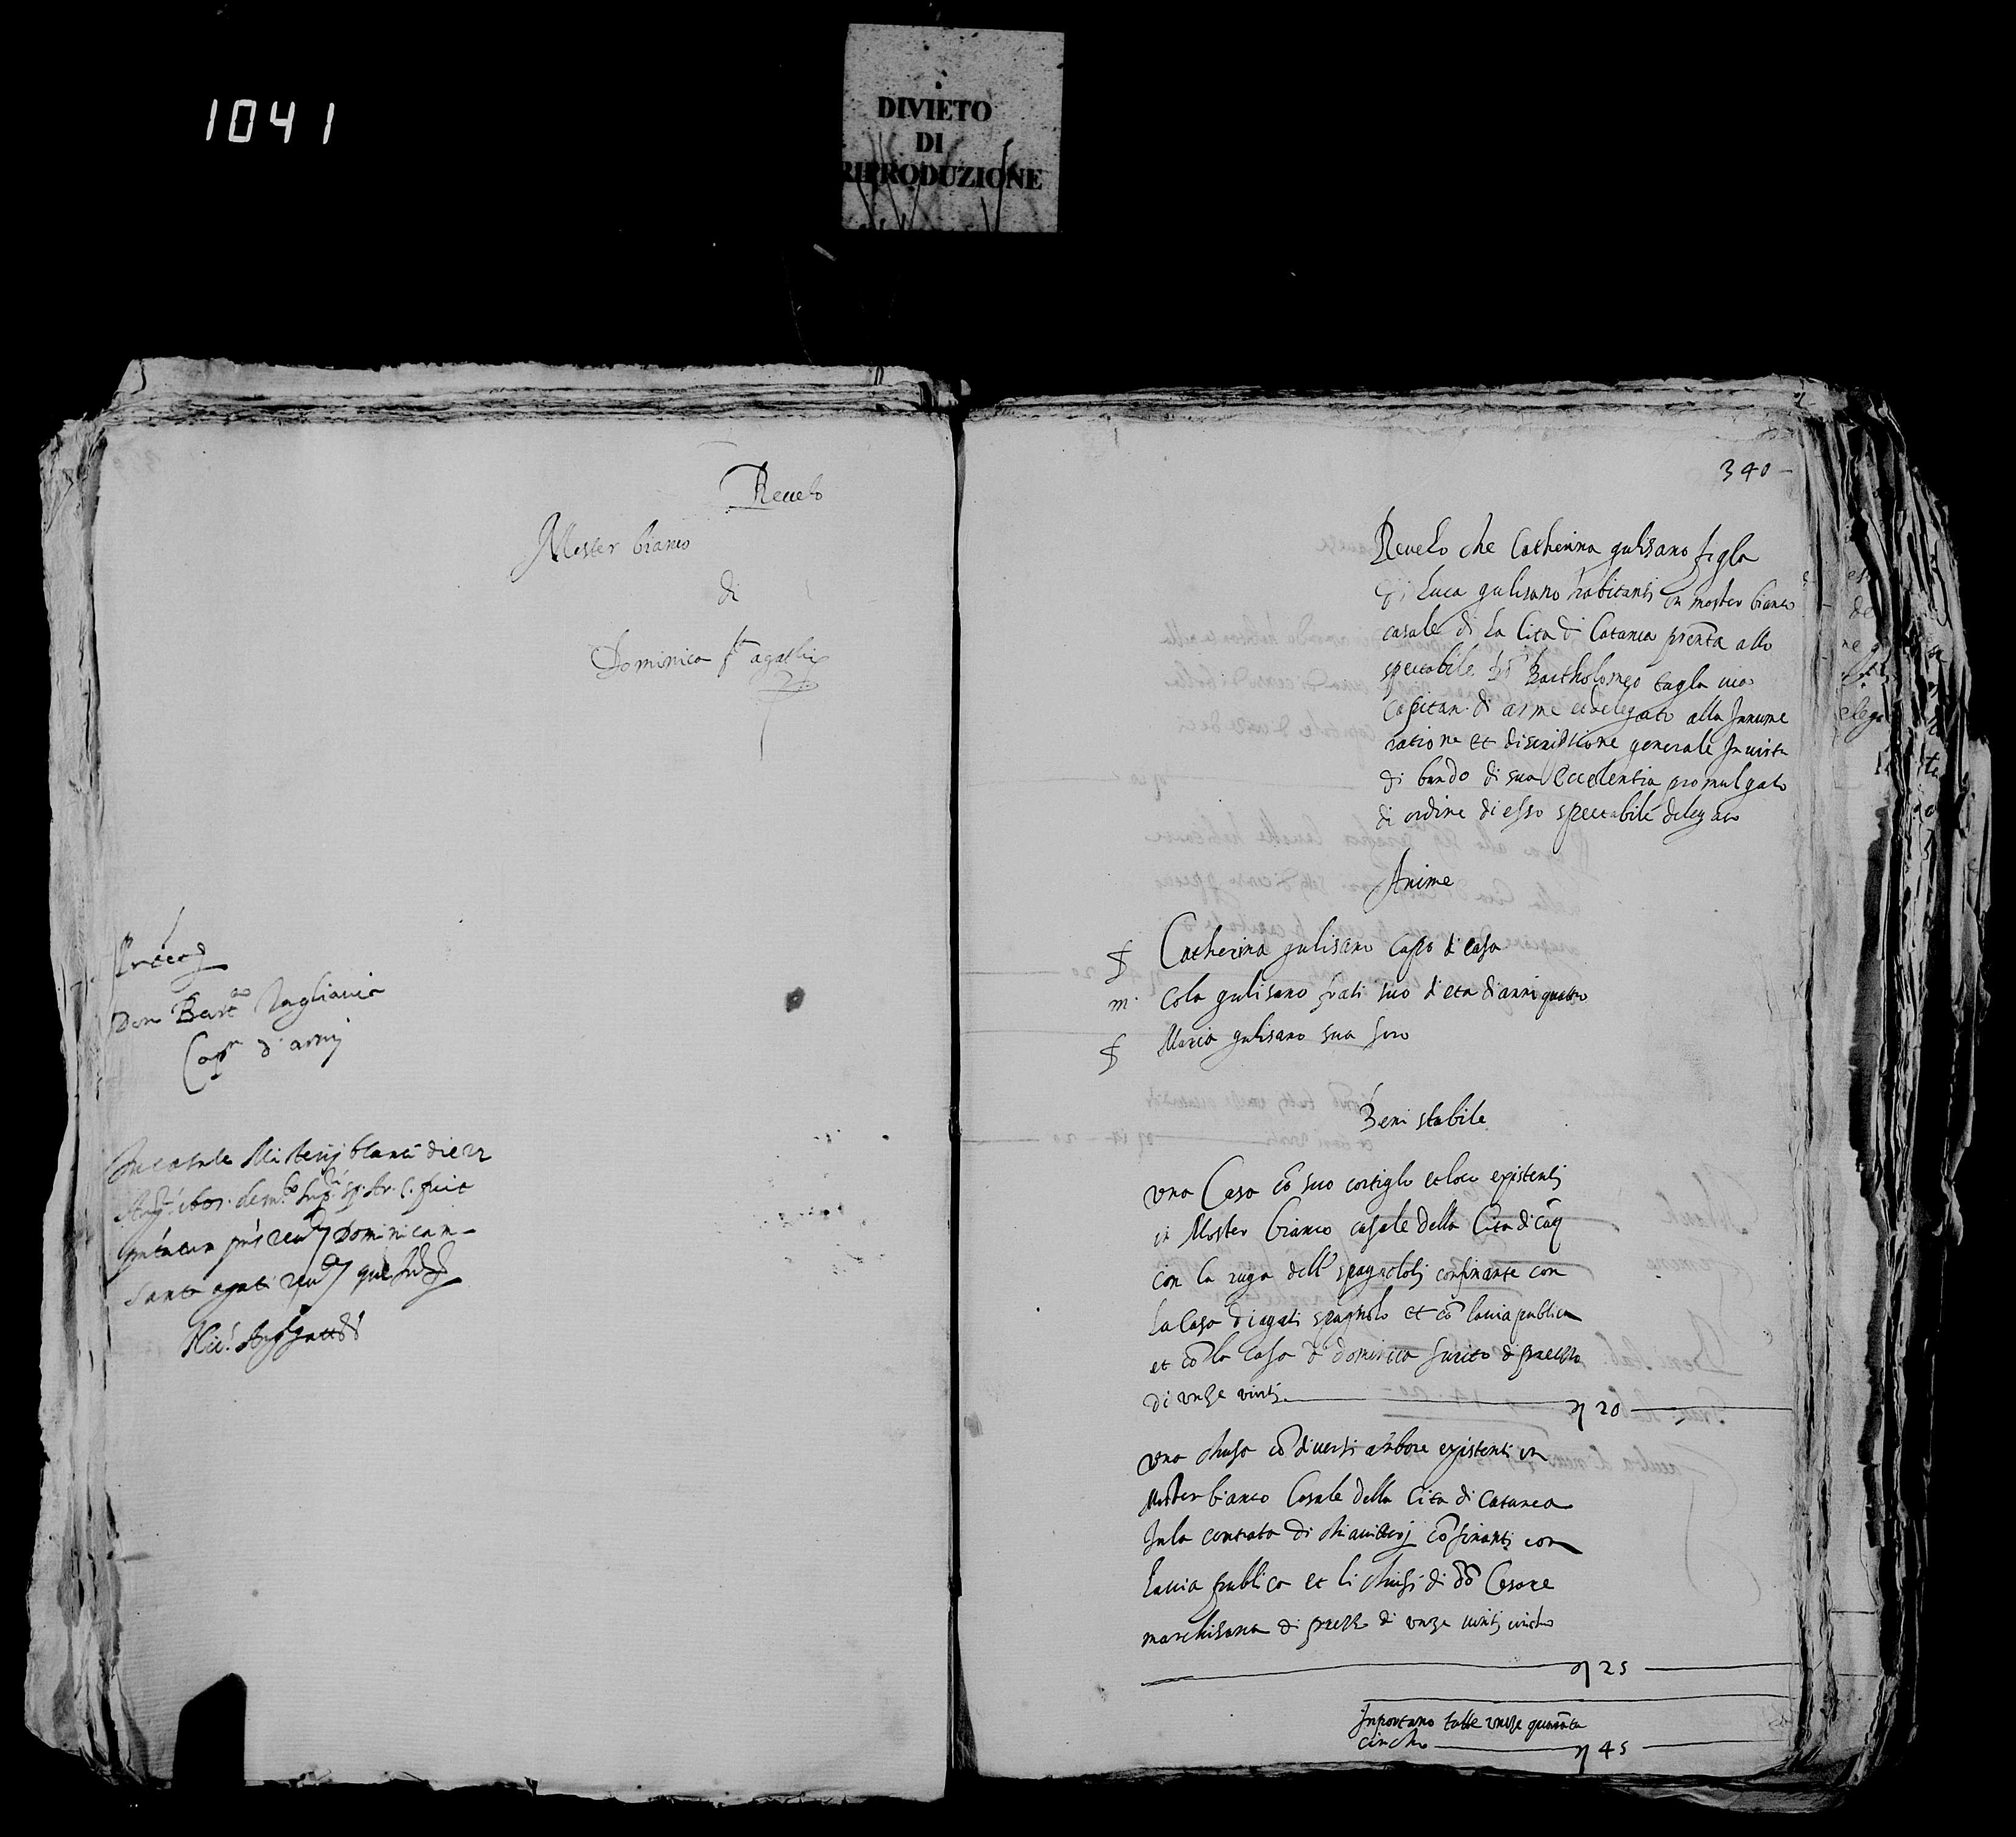 1041
DIVIETO
DI
RIPRODUZIONE
Revelo
Mester bianco
di
Dominica s.ta agathi
Don Bart.eo Tagliavia
Cap.n d'armi
In casale Misterij blanci die 22
Dominicam
Santa agati
340
Revelo che Catherina gulisano figla
di Luca gulisano habitanti in mester bianco
casale di La Cita di Catania presẽta allo
spectabile dõ Bartholomeo tagla via
Capitan di arme et delegato alla Innume
ratione et discriptione generale In virtu
di bando di sua Eccelentia promulgato
di ordine di esso spectabile delegato
Anime
f Catherina gulisano capo di casa
m. Cola gulisano frati suo di eta di anni quatro
f Maria gulisano sua soro
Beni stabile
una Casa cõ suo cortiglo et loco existenti
in Mester bianco casale della Cita di Catª
con la ruga delli spagnoloj confinante con
La Casa di agati spagnolo et cõ la via publica
et cõ la casa di dominico di prezzo
di unze vinti q 20
una chusa cõ diversi arbore existenti in
Mester bianco Casale della Cita di Catanea
In la contrata di cõfinanti con
La via publica et li chusi di dõ Cesare
marchisana di prezzo di unze vinti cincho
q 25
Inportano tutte unze quarãta
cincho q 45